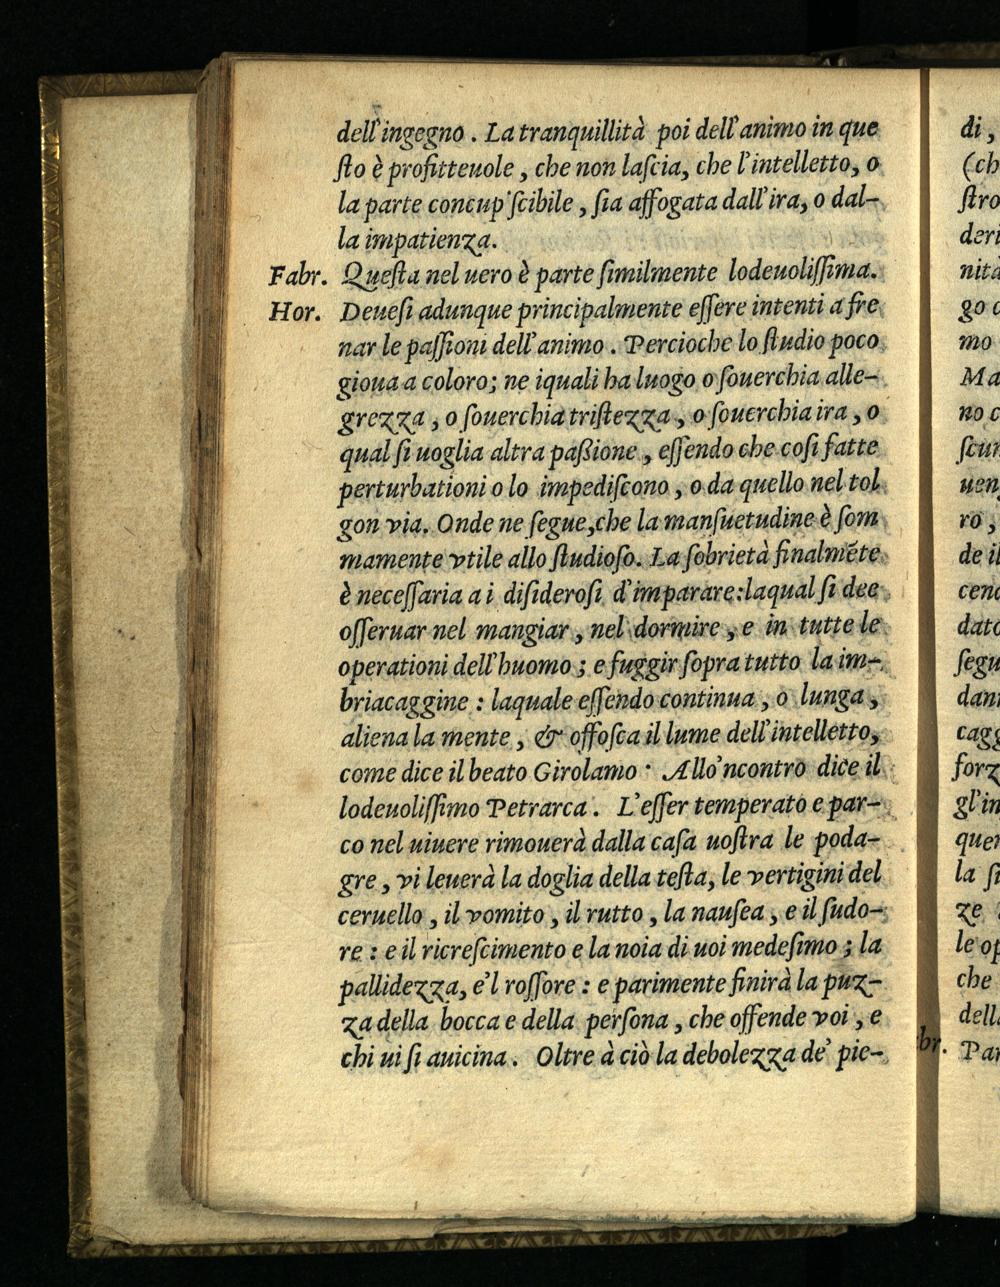 dell'ingegno. La tranquillità poi dell'animo in que
ſto è profitteuole, che non laſcia, che l'intelletto, o
la parte concup'ſcibile, ſia affogata dall'ira, o dal-
la impatienza.
Fabr. Queſta nel uero è parte ſimilmente lodeuoliſſima.
Hor. Deueſi adunque principalmente eſſere intenti a fre
nar le paſſioni dell'animo. Percioche lo ſtudio poco
gioua a coloro; ne iquali ha luogo o ſouerchia alle-
grezza, o ſouerchia triſtezza, o ſouerchia ira, o
qual ſi uoglia altra paßione, eſſendo che coſi fatte
perturbationi o lo impediſcono, o da quello nel tol
gon via. Onde ne ſegue, che la manſuetudine è ſom
mamente vtile allo ſtudioſo. La ſobrietà finalmẽte
è neceſſaria a i diſideroſi d'imparare: laqual ſi dee
oſſeruar nel mangiar, nel dormire, e in tutte le
operationi dell'huomo; e fuggir ſopra tutto la im-
briacaggine: laquale eſſendo continua, o lunga,
aliena la mente, & offoſca il lume dell'intelletto,
come dice il beato Girolamo· Allo'ncontro dice il
lodeuoliſſimo Petrarca. L'eſſer temperato e par-
co nel uiuere rimouerà dalla caſa uoſtra le poda-
gre, vi leuerà la doglia della teſta, le vertigini del
ceruello, il vomito, il rutto, la nauſea, e il ſudo-
re: e il ricreſcimento e la noia di uoi medeſimo; la
pallidezza, e'l roſſore: e parimente finirà la puz-
za della bocca e della perſona, che offende voi, e
chi ui ſi auicina. Oltre à ciò la debolezza de' pie-
di,
(ch
ſtro
deri
nità
go
mo
Ma
no
ſcur
uen
ro,
de il
cend
dato
ſegu
dann
cagg
forz
gl'in
quen
la ſi
ze
le op
che
della
br. Par